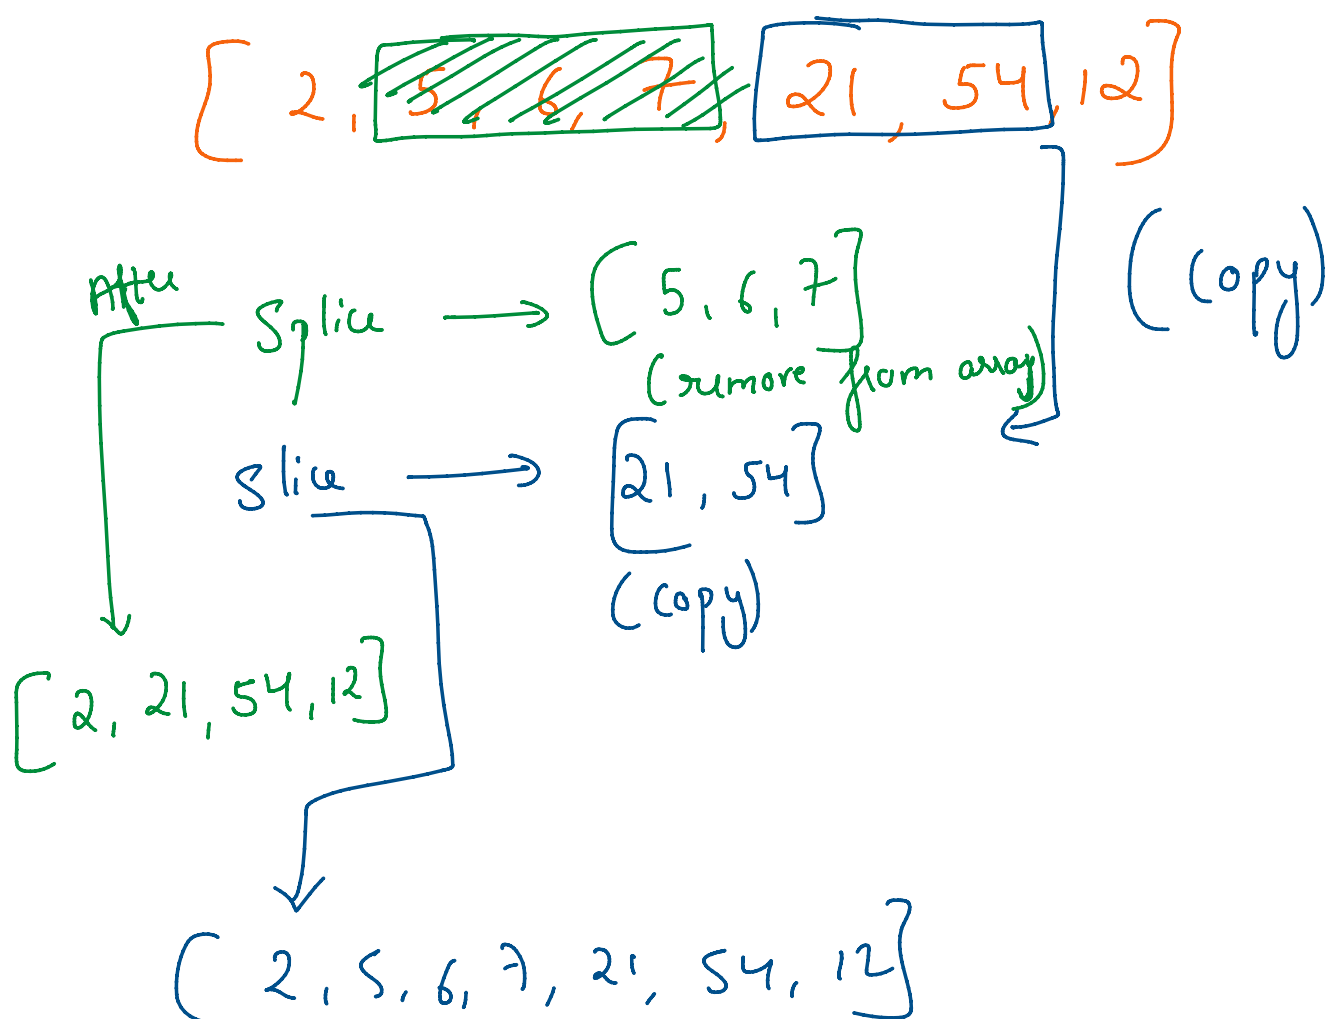 [ 2, 5, 6, 7, 21, 54, 12 ]
(copy)
After
Splice → [ 5, 6, 7 ]
(remove from array)
Slice → [ 21, 54 ]
(copy)
[ 2, 21, 54, 12 ]
[ 2, 5, 6, 7, 21, 54, 12 ]